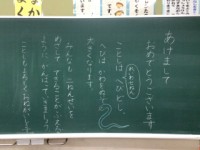 あけまして
おめでとうございます
ことしは、へびどし。
へびは、かわをぬいで
大きくなります。
みんなも、二ねんせいを
めざして、できることがふえる
ように、がんばっていきましょう。
ことしもよろしくおねがいします。